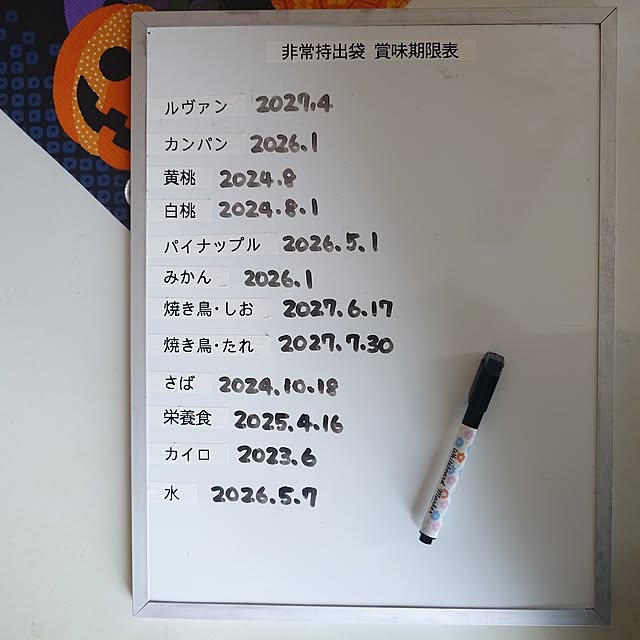 非常持出袋 賞味期限表
ルヴァン 2027.4
カンパン 2026.1
黄桃 2024.8
白桃 2024.8.1
パイナップル 2026.5.1
みかん 2026.1
焼き鳥・しお 2027.6.17
焼き鳥・たれ 2027.7.30
さば 2024.10.18
栄養食 2025.4.16
カイロ 2023.6
水 2026.5.7
Whiteboard Marker